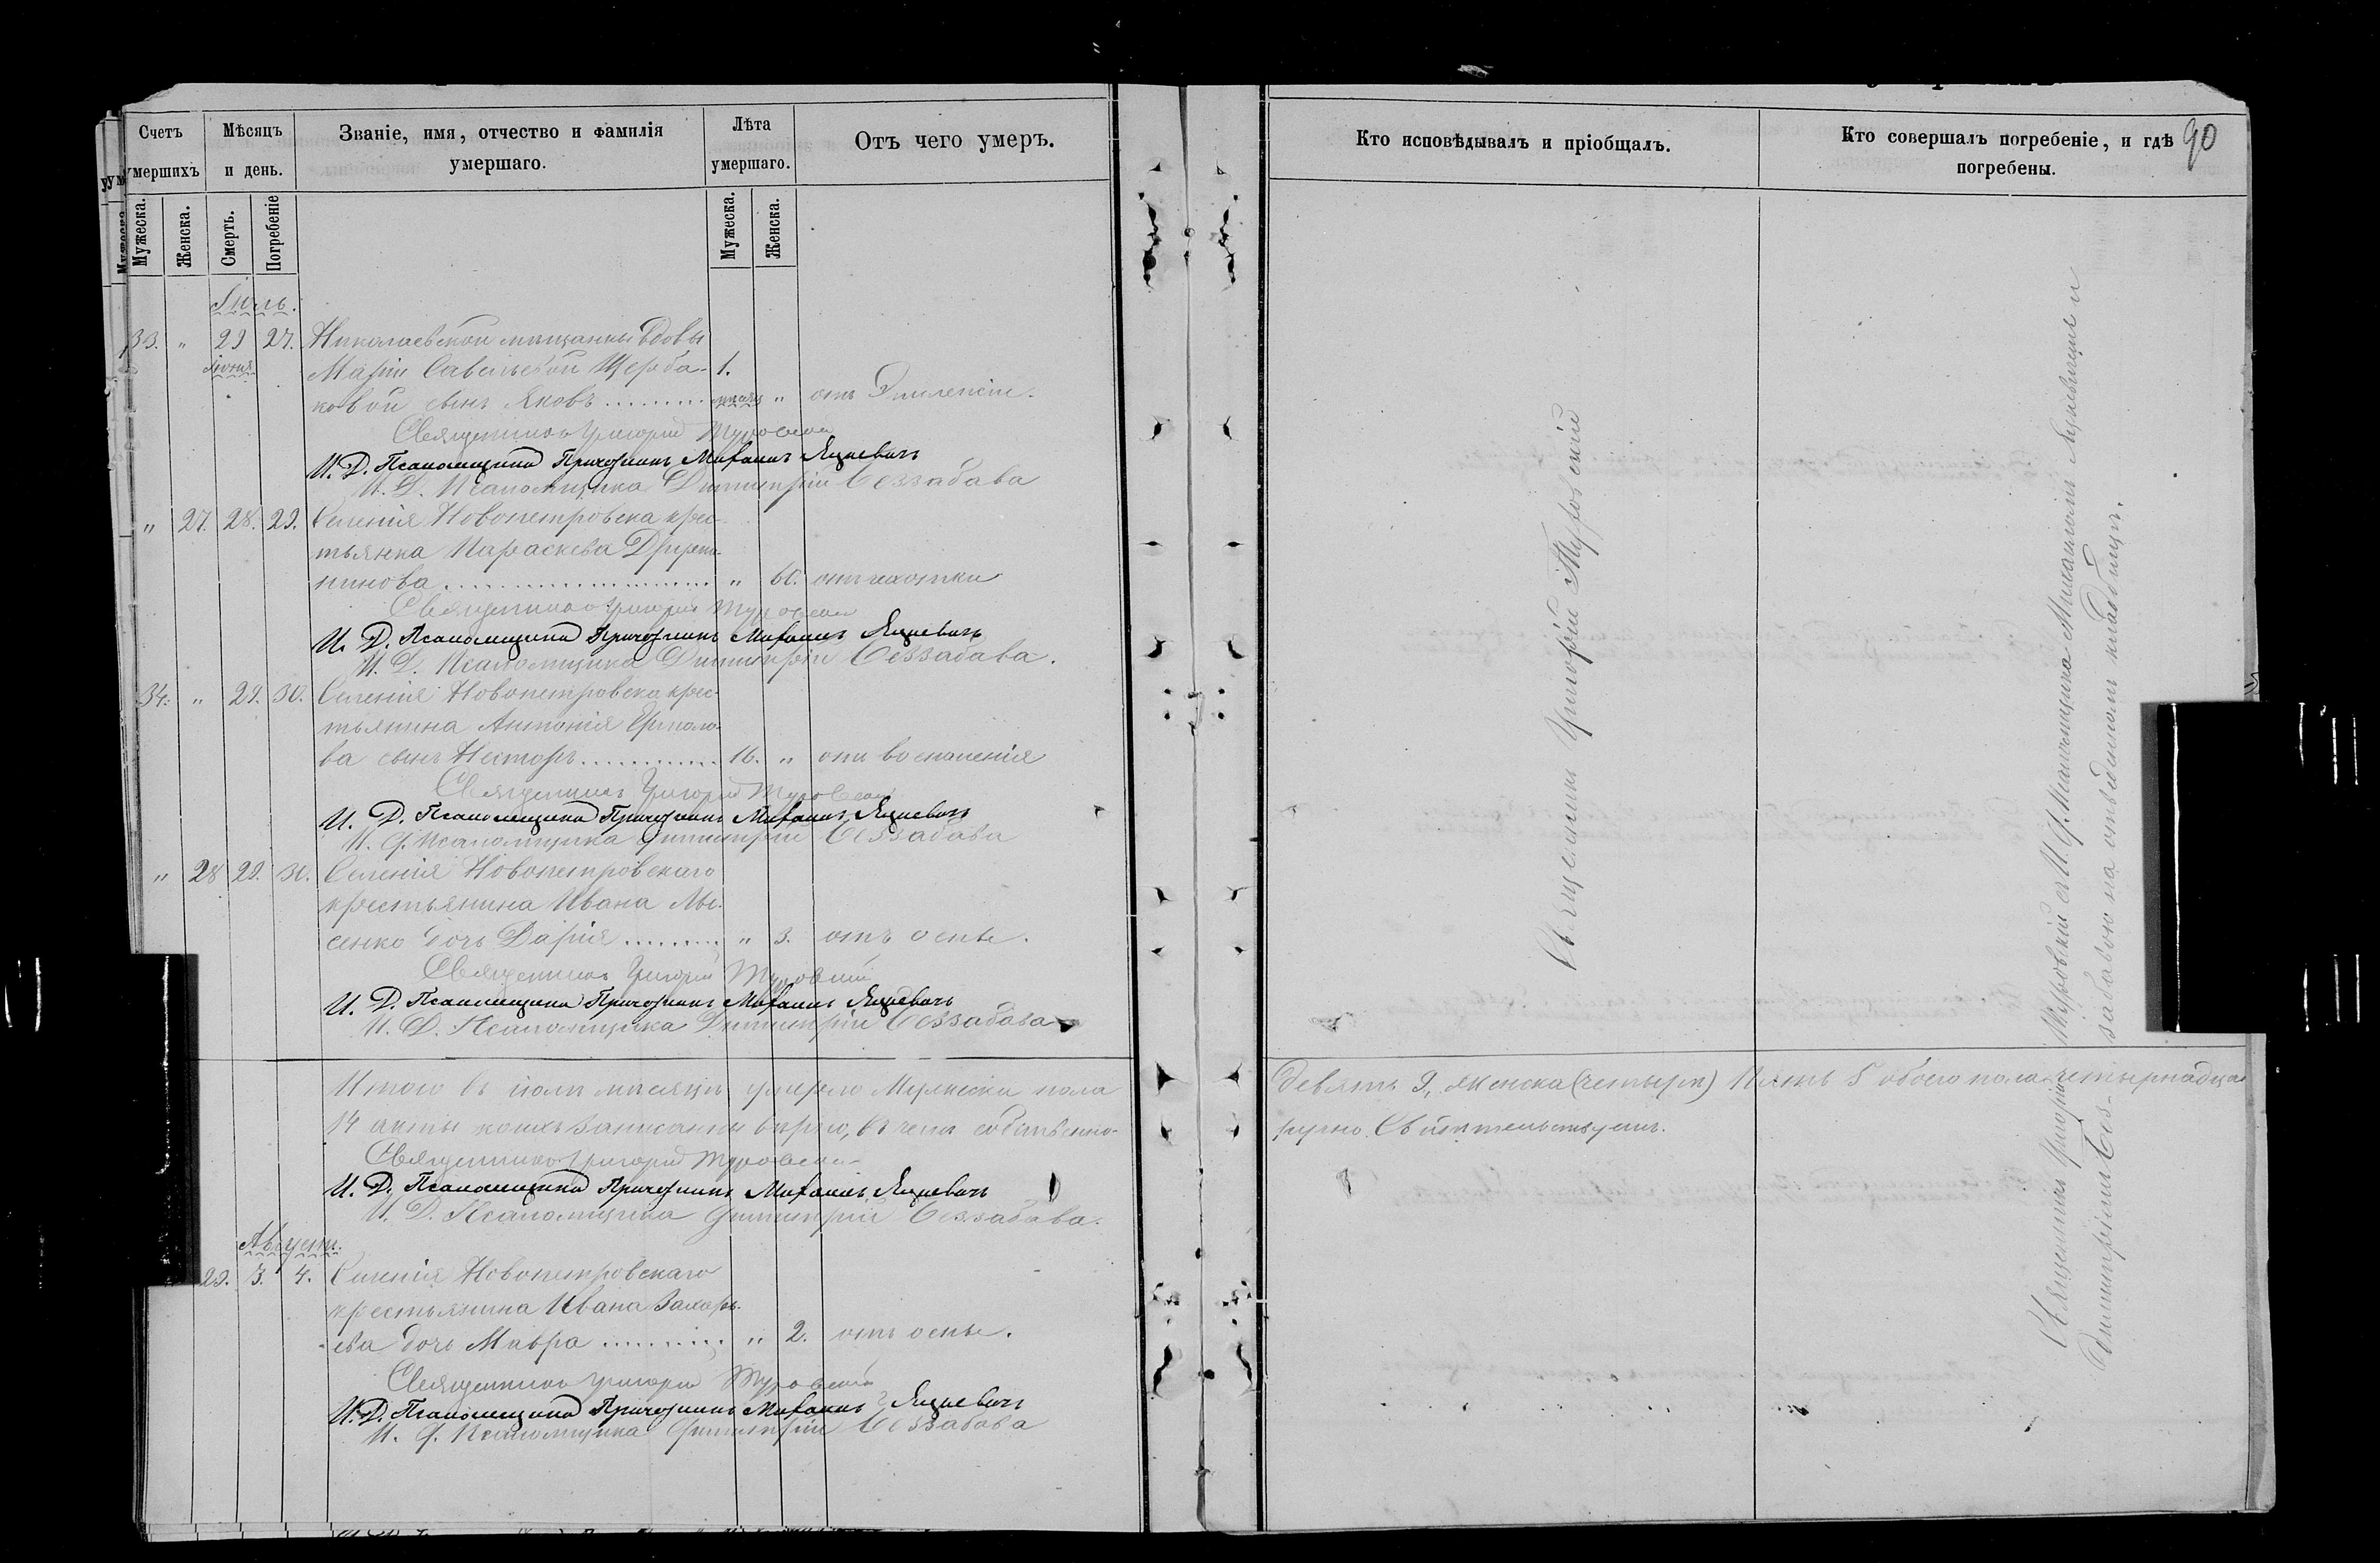 Счетъ умершихъ
Мѣсяцъ и день.
Званіе, имя, отчество и фамилія
умершаго.
Лѣта умершаго.
Отъ чего умеръ.
Мужеска.
Женска.
Смерть.
Погребеніе
Мужеска.
Женска.
Іюль.
33. " 29 27. Николаевской мещанки вдовы
Іюня Маріи Савельевой Щерба- 1.
ковой сынъ Яковъ мѣсяц " отъ Эпилепсіи.
Священникъ Григорій Туровскій
И. Д. Псаломщика Михаилъ Яцкевичъ
И. Д. Псаломщика Димитрій Беззабава
" 27. 28. 29. Селенія Новопетровска крес-
тьянка Параскева
нинова " 60. отъ чахотки
Священникъ Григорій Туровскій
И. Д. Псаломщика Михаилъ Яцкевичъ
И. Д. Псаломщика Димитрій Беззабава.
34. " 29. 30. Селенія Новопетровска крес-
тьянина Антонія Ермоло-
ва сынъ Несторъ 16. " отъ воспаленія
Священникъ Григорій Туровскій
И. Д. Псаломщика Михаилъ Яцкевичъ
И. Д. Псаломщика Димитрій Беззабава
" 28 29. 30. Селенія Новопетровскаго
крестьянина Ивана Лы-
сенко дочь Дарія " 3. отъ оспы.
Священникъ Григорій Туровскій
И. Д. Псаломщика Михаилъ Яцкевичъ
И. Д. Псаломщика Димитрій Беззабава
Итого въ іюлѣ мѣсяцѣ умерло Мужеска пола
14 акты коихъ записанны вѣрно, въ чемъ собственно-
Священникъ Григорій Туровскій
И. Д. Псаломщика Михаилъ Яцкевичъ
И. Д. Псаломщика Димитрій Беззабава.
Августъ.
29. 3. 4. Селенія Новопетровскаго
крестьянина Ивана Захарь-
ева дочь Мавра " 2. отъ оспы.
Священникъ Григорій Туровскій
И. Д. Псаломщика Михаилъ Яцкевичъ
И. Д. Псаломщика Димитрій Беззабава
Кто исповѣдывалъ и пріобщалъ.
Кто совершалъ погребеніе, и гдѣ
погребены.
90
Священникъ Григорій Туровскій
Священникъ Григорій Туровскій съ И. Д. Псаломщика Михаиломъ Яцкевичемъ и
Димитріемъ Без-забавою на отведенномъ кладбищѣ.
девять 9, женска (четыре) Пять 5 обоего пола четырнадцать
ручно свидѣтельствуемъ.